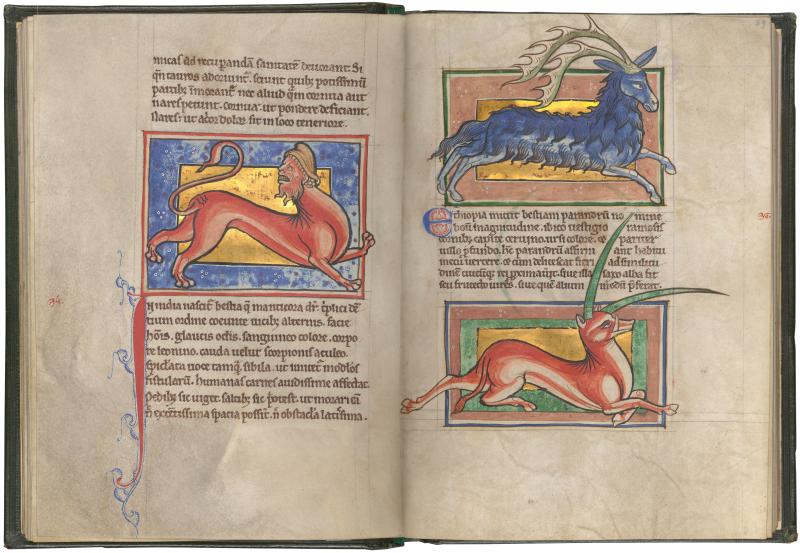 micas ad recuperandā sanitatē deuorant. Si
qn̄ tauros adoriunt̄. sciunt quibȝ potissimū
partibȝ inmorant̄ nec aliud qm̄ cornua aut
nares petunt. cornua. ut pondere deficiant.
nares. ut acrior dolor sit in loco teneriore.
34.
In india nascit̄ bestia q̄ manticora dr̄. triplici dē
tium ordine coeunte uicibȝ alternis. facie
hoīs. glaucis oclīs. sanguineo colore. corpo
re leonino. cauda uelut scorpionis aculeo
spiclata uoce tamq̄ sibila. ut imitet̄ modlos
fistularū. humanas carnes auidissime affectat.
Pedibȝ sic uiget. saltibȝ sic potest. ut morari eū
n̄ extentissima spacia possint. n̄ obstacla latissima.
39
Ethiopia mittit bestiam parandrū no mine
boui magnitudine. ibico uestigio ramosis
cornibȝ. capite ceruino. ursi colore. et pariter
uillo profundo. hc̄ parandrū affirm ant habitū
metu uertere. et cum delitescat fieri ad similitu
dinē cuicūqȝ rei proximauit. siue illa saxo alba sit
seu fruteto uires. siue quē alium modū preferat.
36.